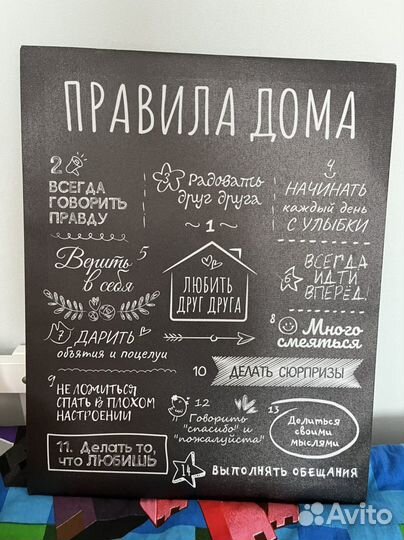 ПРАВИЛА ДОМА
~ 1 ~
ЛЮБИТЬ
ДРУГ ДРУГА
2
ВСЕГДА
ГОВОРИТЬ
ПРАВДУ
3
Радовать
друг друга
4
НАЧИНАТЬ
каждый день
С УЛЫБКИ
5
Верить
в себя
6
ВСЕГДА
ИДТИ
ВПЕРЁД!
7 ДАРИТЬ
объятия и поцелуи
8
Много
смеяться
9
НЕ ЛОЖИТЬСЯ
СПАТЬ В ПЛОХОМ
НАСТРОЕНИИ
10 ДЕЛАТЬ СЮРПРИЗЫ
11. Делать то,
что ЛЮБИШЬ
12
Говорить
"спасибо" и
"пожалуйста"
13
Делиться
своими
мыслями
14 ВЫПОЛНЯТЬ ОБЕЩАНИЯ
Avito